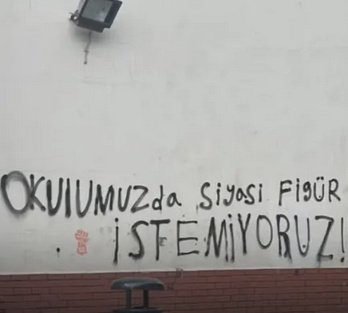 OKULUMUZda Siyasi FiGÜR
İSTEMİYORUZ!